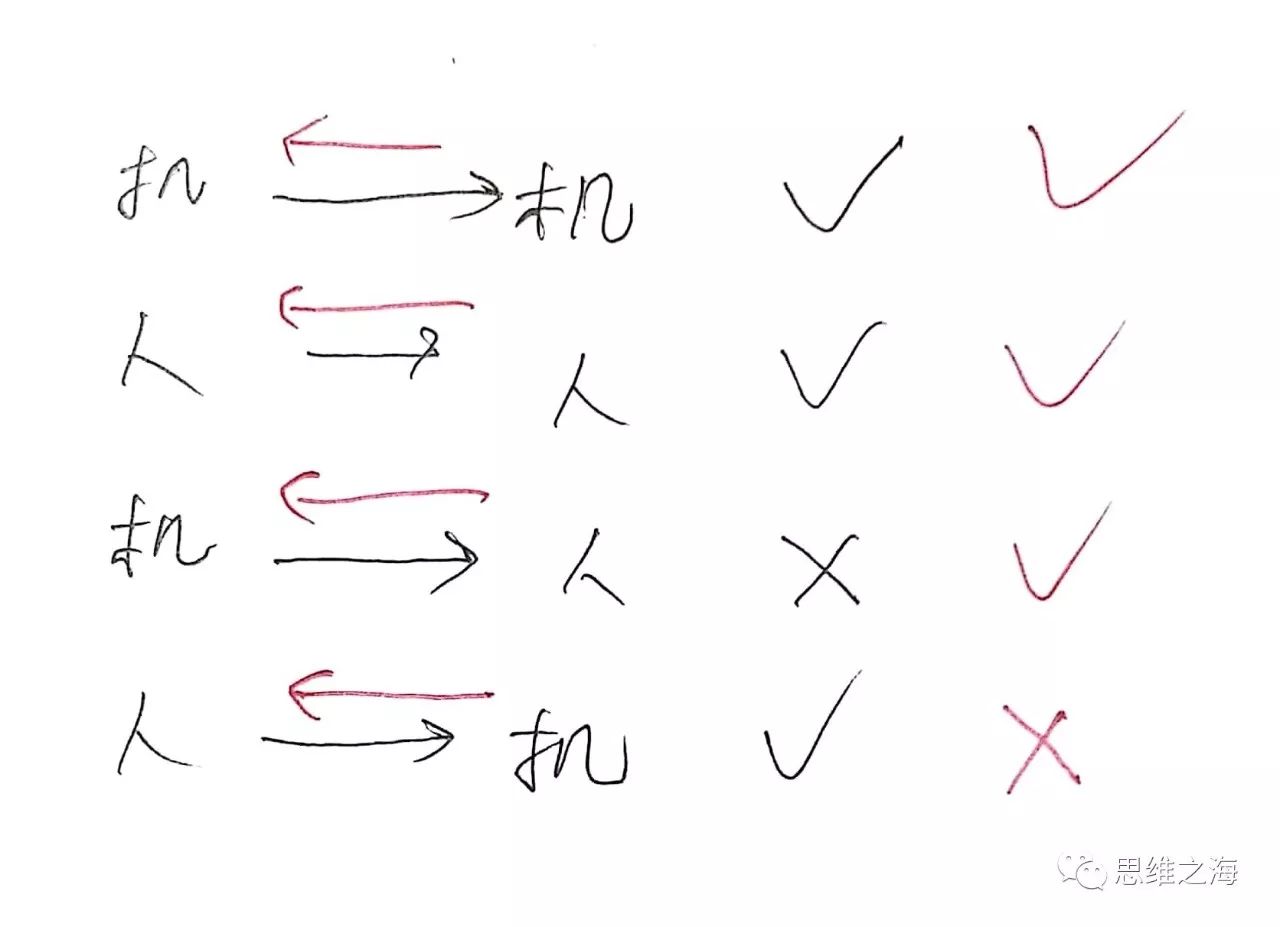 机 ← → 机 ✓ ✓
人 ← → 人 ✓ ✓
机 ← → 人 × ✓
人 ← → 机 ✓ ×
思维之海